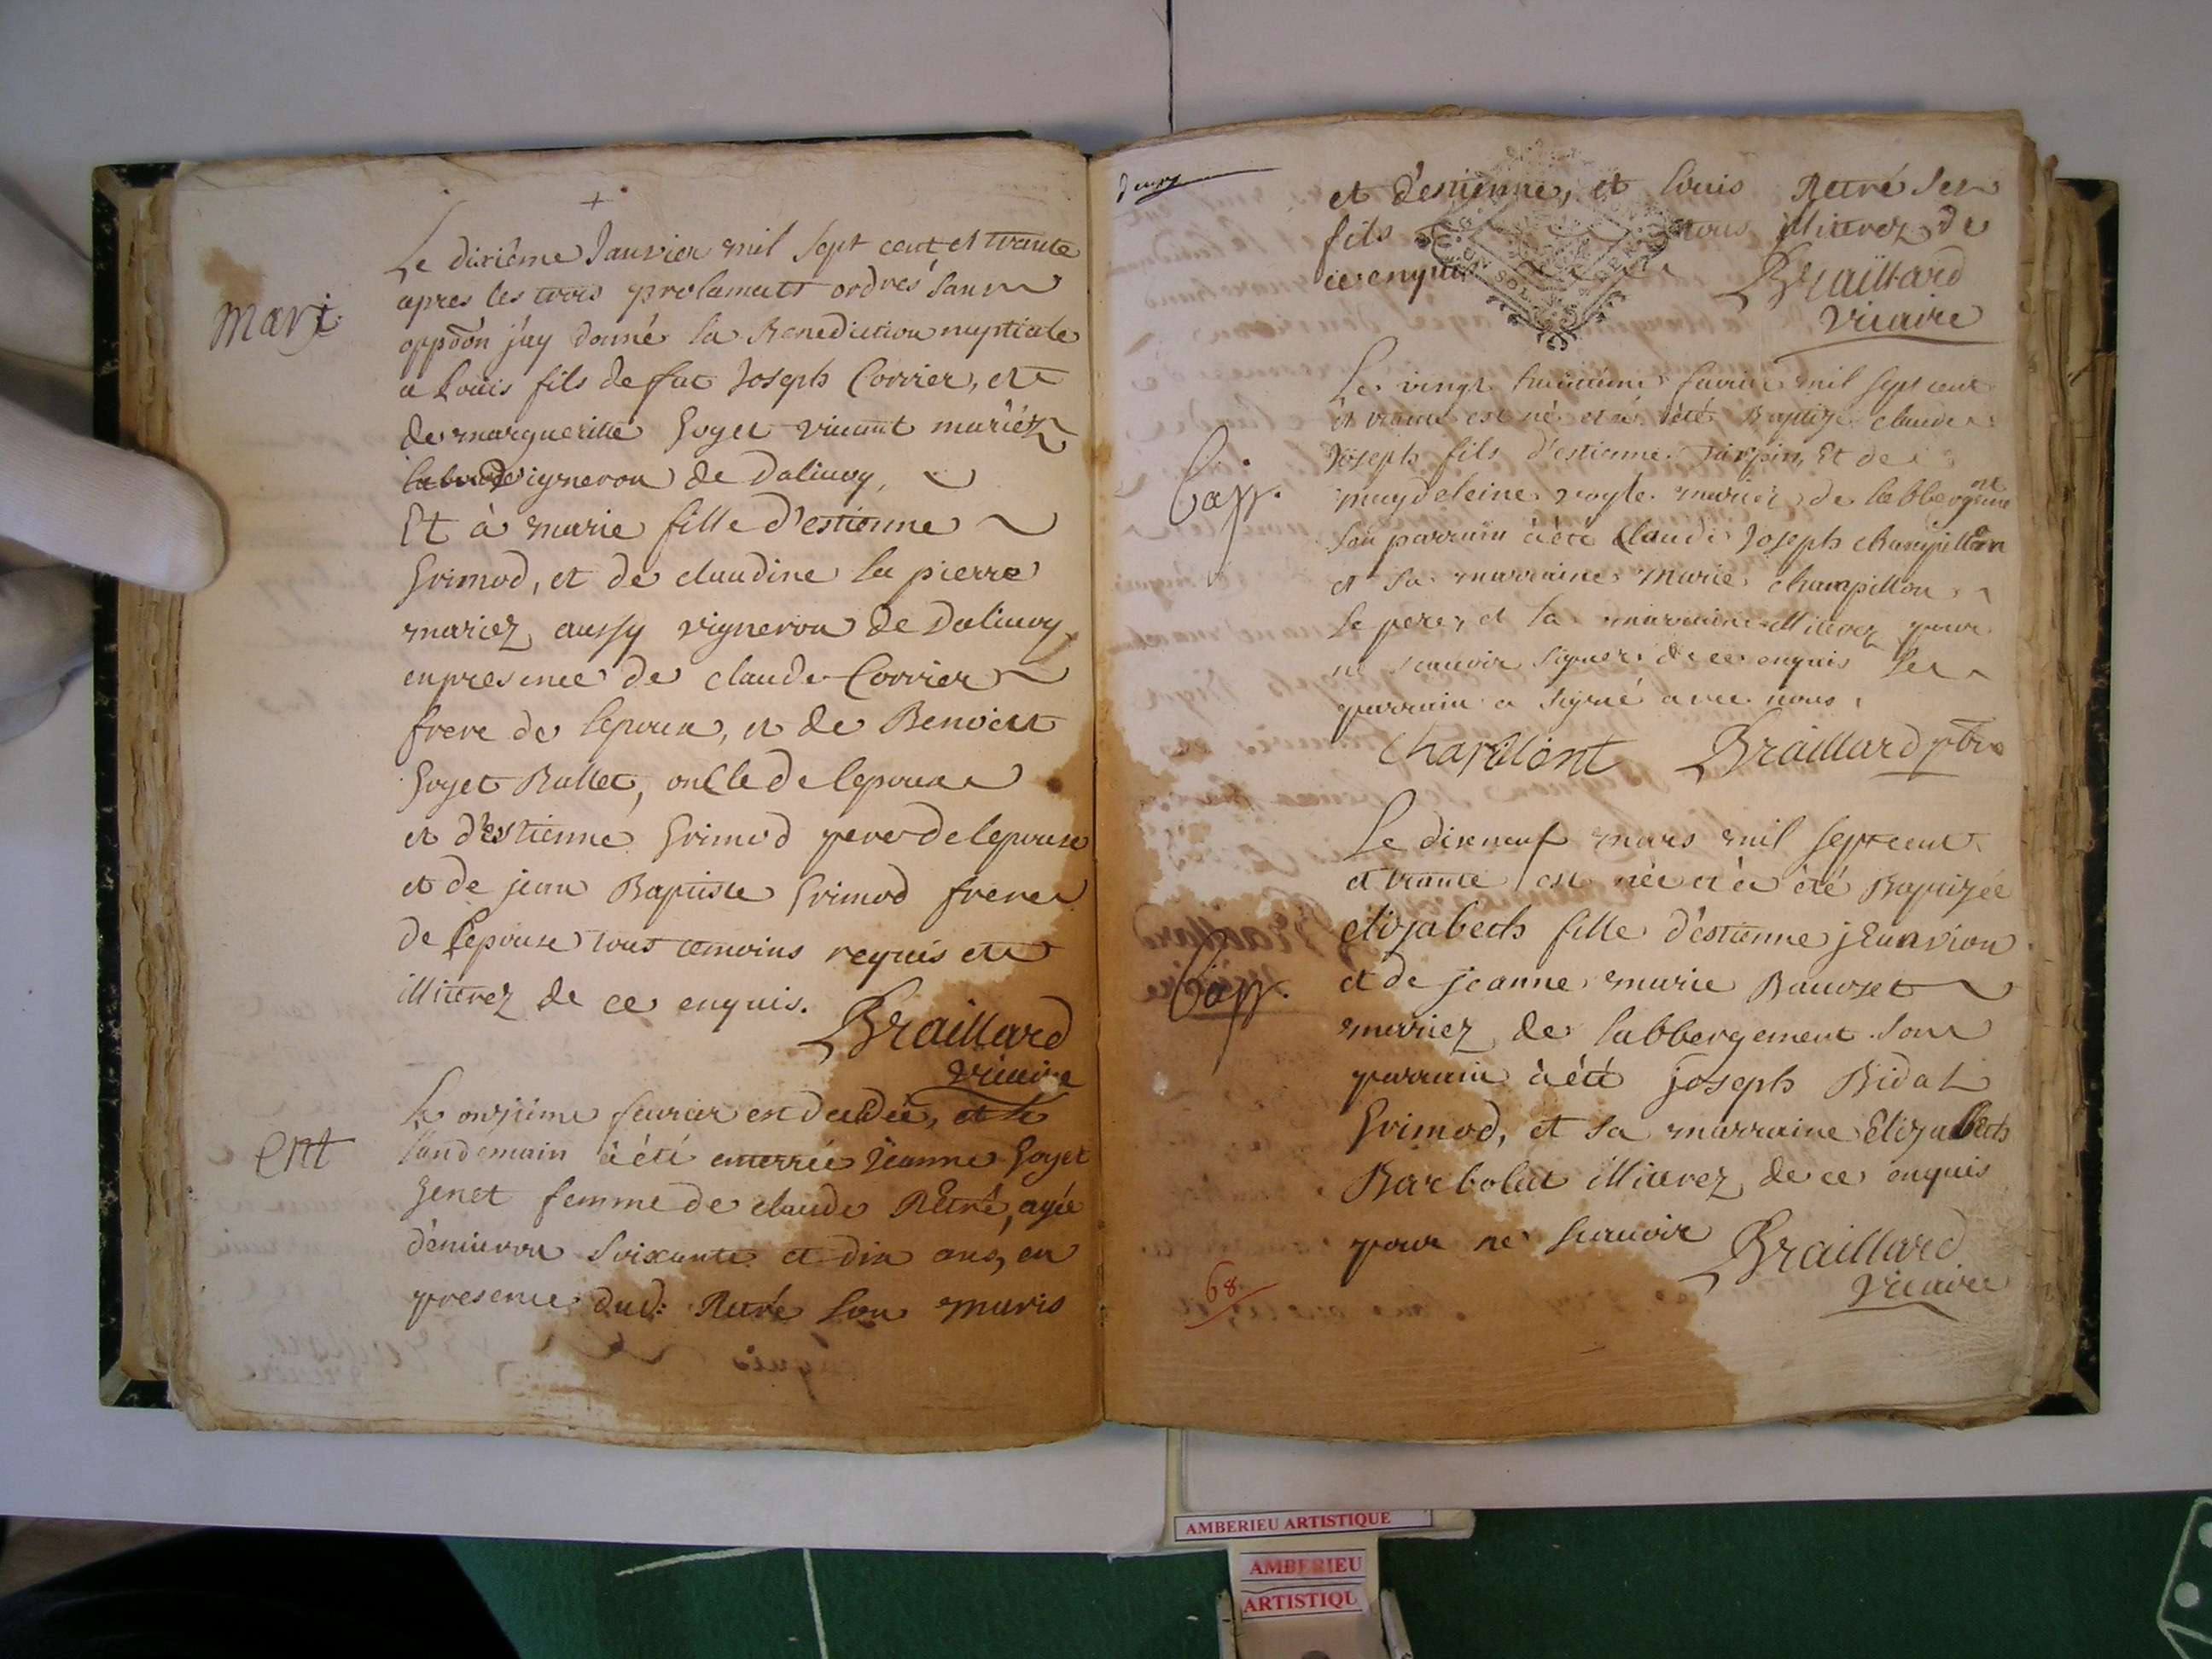 +
Mari:
Le dixième Janvier mil sept cent et trante
apres les trois prolamats ordres sans
oppoõn j'ay donné la Benediction nuptiale
a Louis fils de fut Joseph Corrier, et
de margueritte Goyet vivant mariéz
vigneron de Dalivoy,
Et à marie fille d'estienne
Grimod, et de claudine la pierre
mariez aussy vigneron de Dalivoy
en presence de claude Corrier
frere de lepoux, et de Benoist
Goyet Rullet, oncle de lepoux
et d'estienne Grimod pere de lepouse
et de jean Baptiste Grimod frere
de lepouse tous temoins requis et
illiterez de ce enquis.
Braillard
vicaire
Ent
Le onzième fevrier est decedée, et le
landemain à été enterrée Jeanne Goyet
Genet femme de claude Retré, agée
d'environ soixante et dix ans, en
presence dud: Retré son maris
deux
et d'estienne, et louis Retré ses
fils tous illiterez de
ce enquis
Braillard
vicaire
Bap.
Le vingt huitième fevrier mil sept cent
et trante est né et à été Baptizé claude
Joseph fils d'estienne et de
magdeleine mariez de labbergement
son parrain à été Claude Joseph champillon
et sa marraine Marie champillon
le pere, et la marraine illiterez pour
ne scauoir signer de ce enquis le
parrain a signé avec nous.
Braillard ptre
Bap.
Le dixneuf mars mil sept cent
et trante est née et à été Baptizée
elizabeth fille d'estienne jeanvion
et de jeanne marie
mariez de labbergement son
parrain à été joseph Bidal
Grimod, et sa marraine Elizabeth
Barbolat illiterez de ce enquis
pour ne scauoir
Braillard
vicaire
68
AMBERIEU ARTISTIQUE
AMBERIEU
ARTISTIQU